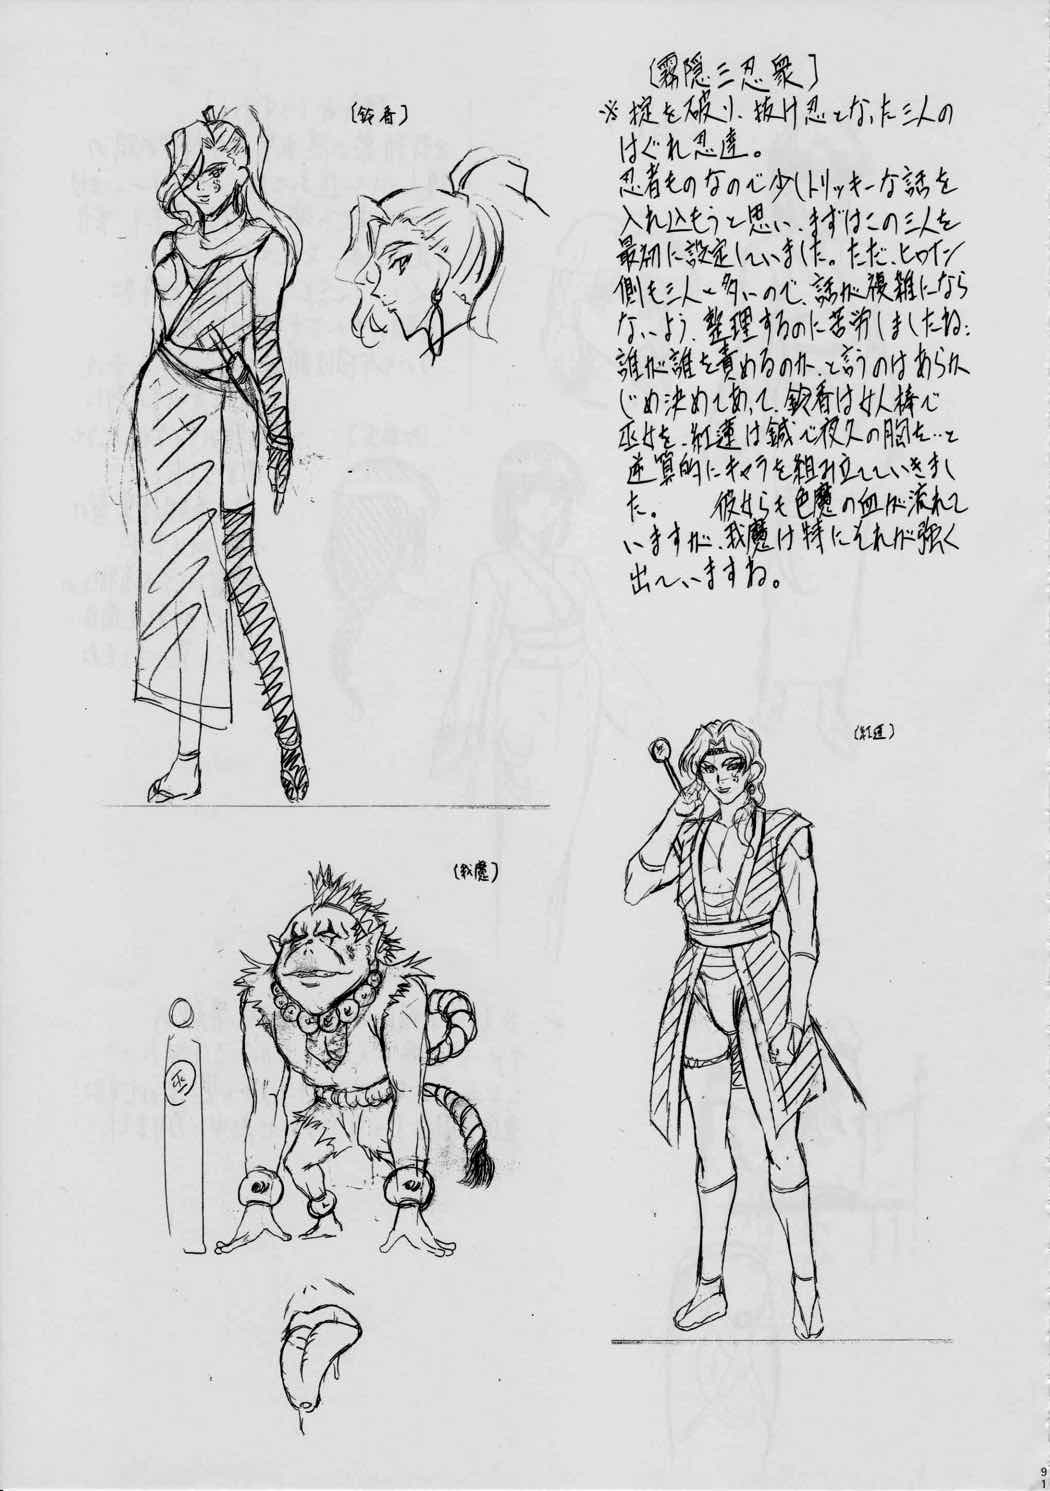 〔霧隠三忍衆〕
※掟を破り、抜け忍となった三人の
はぐれ忍達。
忍者ものなので少しトリッキーな話を
入れ込もうと思い、まずはこの三人を
最初に設定していました。ただ、ヒロイン
側も三人と多いので、話が複雑になら
ないよう、整理するのに苦労しましたね:
誰が誰を責めるのか、と言うのはあらか
じめ決めてあって、鈴香は女人棒で
巫女を、紅蓮は鍼で夜久の胸を…と
逆算的にキャラを組み立てていきまし
た。 彼女らも色魔の血が流れて
いますが、我魔は特にそれが強く
出ていますね。
〔鈴香〕
〔紅蓮〕
〔我魔〕
巫
91